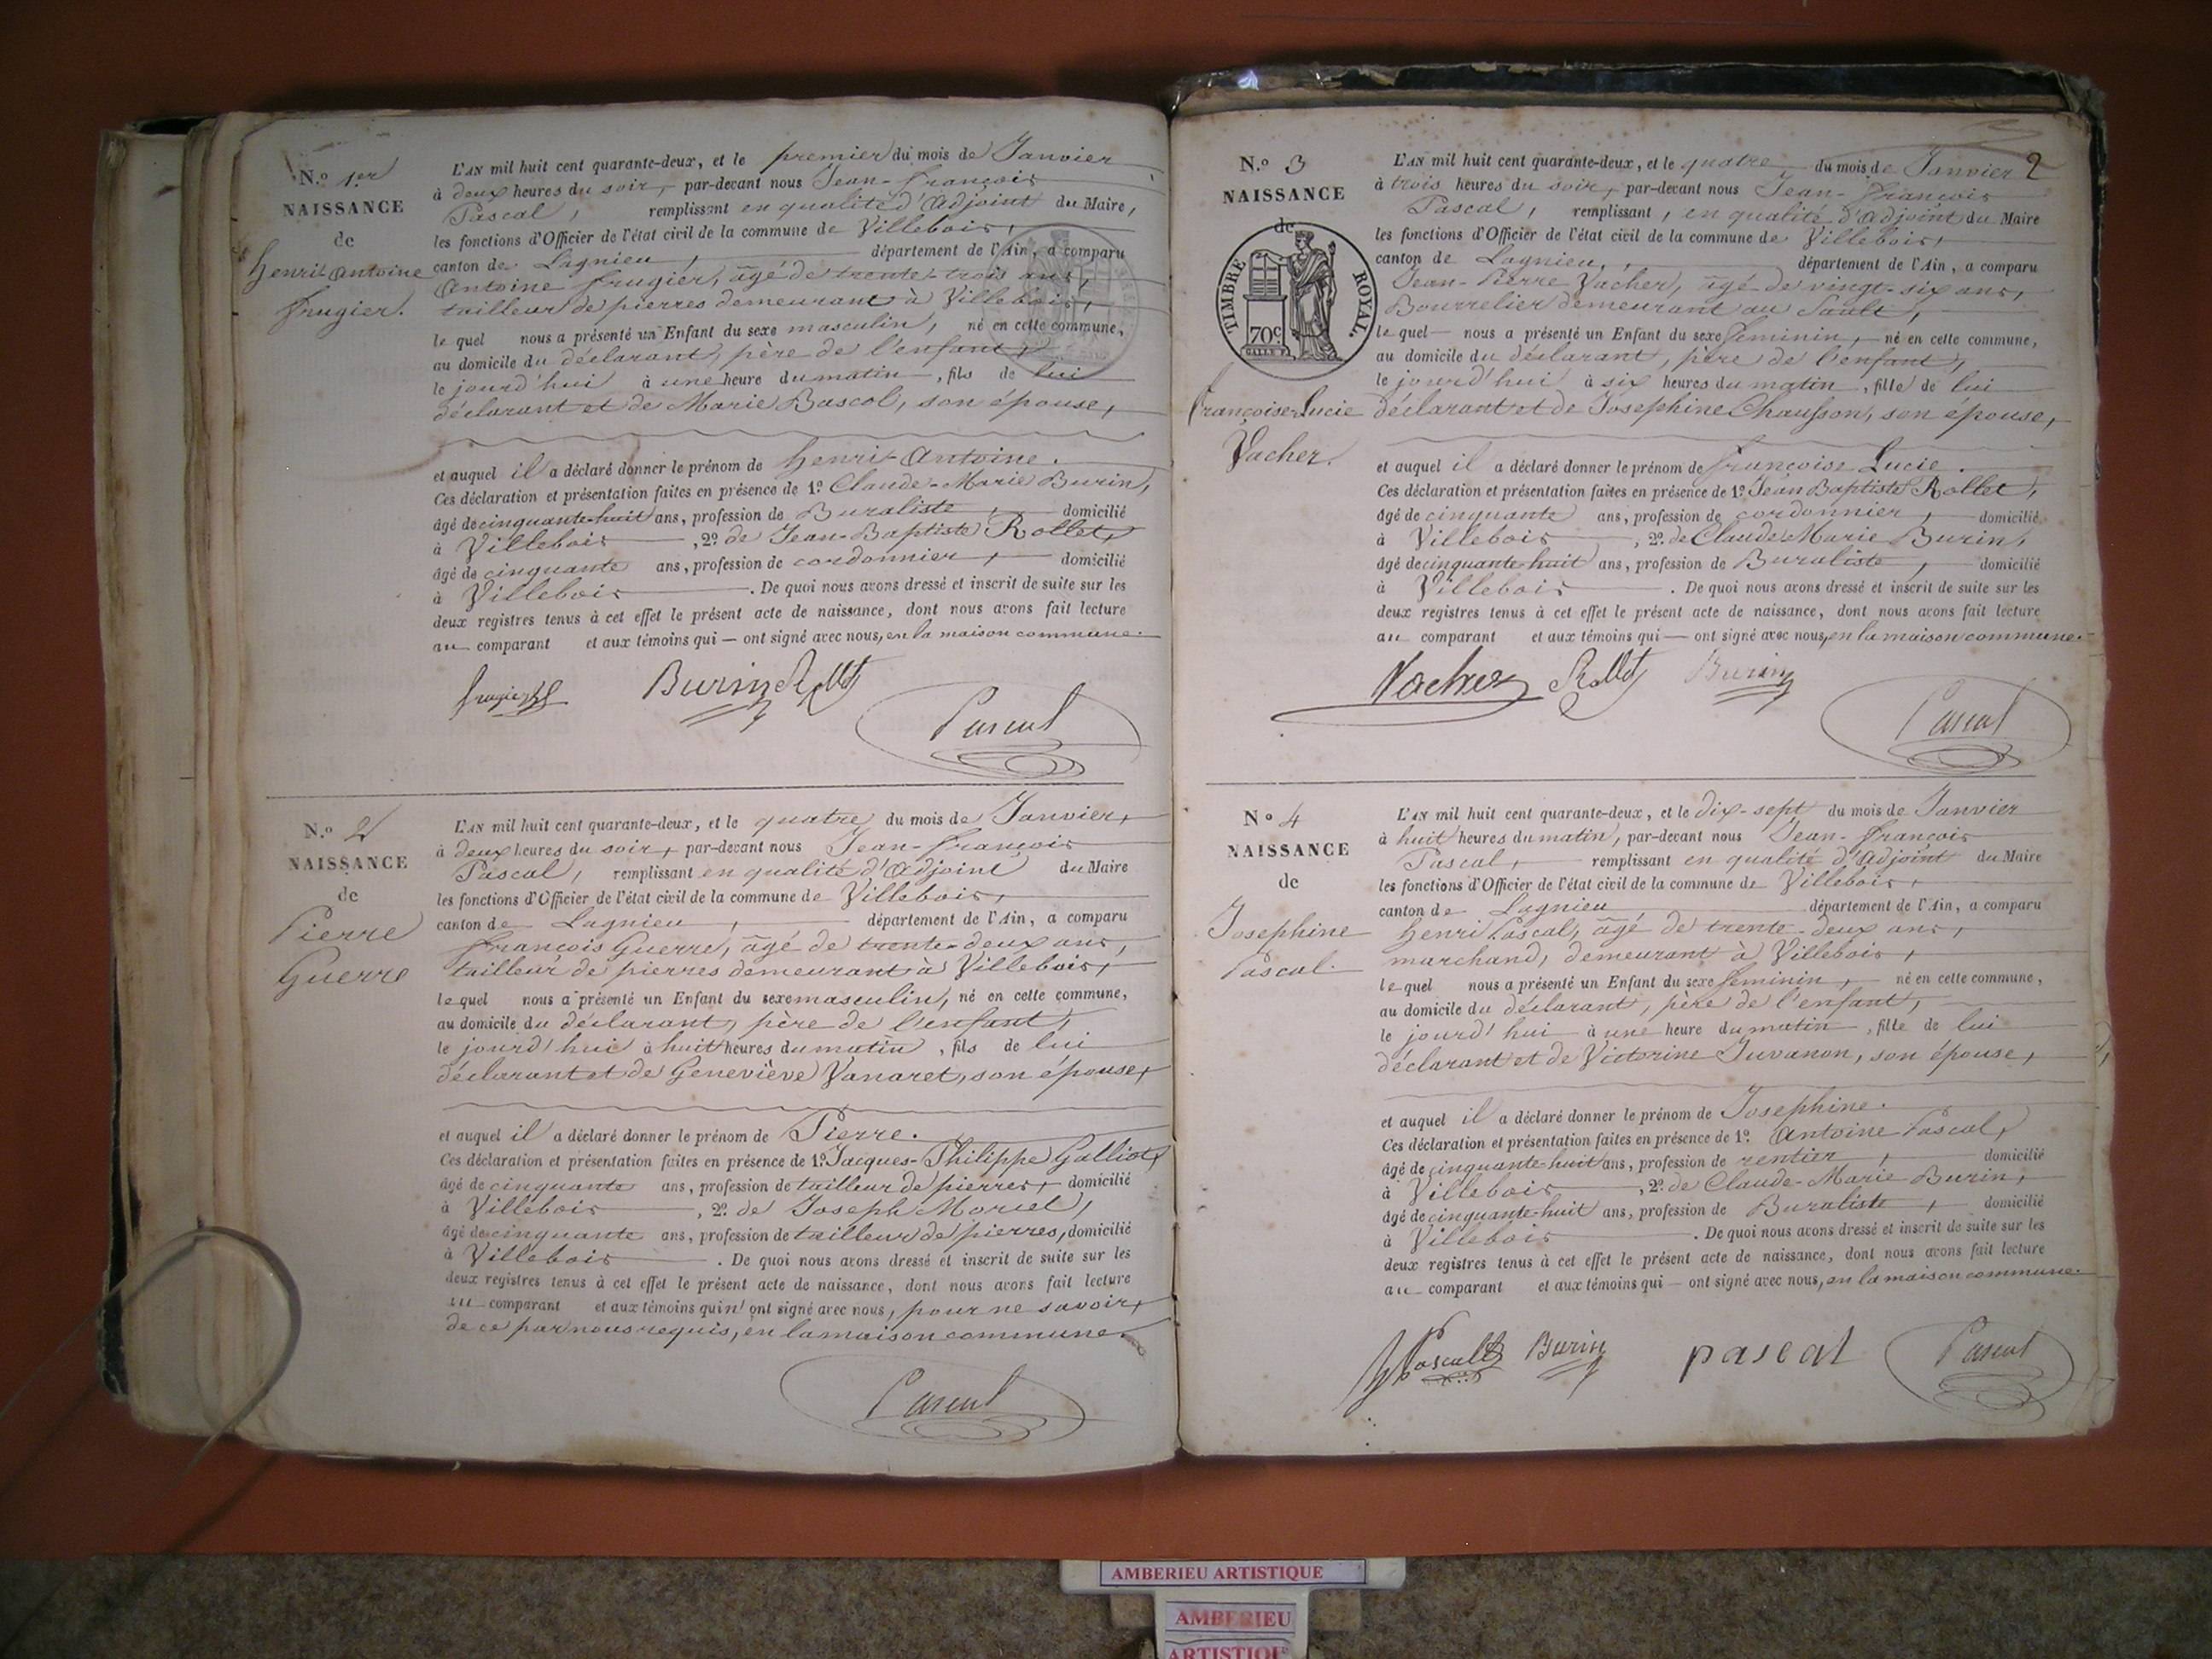 N.o 1.er
NAISSANCE
de
henri antoine
frugier.
L'AN mil huit cent quarante-deux, et le premier du mois de Janvier
à deux heures du soir, par-devant nous Jean-françois
Pascal, remplissant en qualité d'adjoint du Maire,
les fonctions d'Officier de l'état civil de la commune de Villebois,
canton de Lagnieu, département de l'Ain, a comparu
antoine frugier, âgé de trente-trois ans,
tailleur de pierres demeurant à Villebois,
le quel nous a présenté un Enfant du sexe masculin, né en cette commune,
au domicile du déclarant, père de l'enfant,
le jourd'hui à une heure du matin, fils de lui
déclarant et de Marie Bascol, son épouse,
et auquel il a déclaré donner le prénom de henri-antoine.
Ces déclaration et présentation faites en présence de 1º Claude-Marie Burin,
âgé de cinquante-huit ans, profession de Buraliste, domicilié
à Villebois, 2º de Jean-Baptiste Rollet,
âgé de cinquante ans, profession de cordonnier, domicilié
à Villebois. De quoi nous avons dressé et inscrit de suite sur les
deux registres tenus à cet effet le présent acte de naissance, dont nous avons fait lecture
au comparant et aux témoins qui — ont signé avec nous, en la maison commune.
frugier Burin Rollet
Pascal
N.o 2
NAISSANCE
de
Pierre
Guerre
L'AN mil huit cent quarante-deux, et le quatre du mois de Janvier,
à deux heures du soir, par-devant nous Jean-françois
Pascal, remplissant en qualité d'adjoint du Maire
les fonctions d'Officier de l'état civil de la commune de Villebois,
canton de Lagnieu, département de l'Ain, a comparu
françois Guerre, âgé de trente-deux ans,
tailleur de pierres demeurant à Villebois,
le quel nous a présenté un Enfant du sexe masculin, né en cette commune,
au domicile du déclarant, père de l'enfant,
le jourd'hui à huit heures du matin, fils de lui
déclarant et de Geneviève Vanaret, son épouse,
et auquel il a déclaré donner le prénom de Pierre.
Ces déclaration et présentation faites en présence de 1º Jacques-Philippe Galliot,
âgé de cinquante ans, profession de tailleur de pierres, domicilié
à Villebois, 2º de Joseph Moriel,
âgé de cinquante ans, profession de tailleur de pierres, domicilié
à Villebois. De quoi nous avons dressé et inscrit de suite sur les
deux registres tenus à cet effet le présent acte de naissance, dont nous avons fait lecture
au comparant et aux témoins qui n'ont signé avec nous, pour ne savoir,
de ce par nous requis, en la maison commune.
Pascal
2
N.o 3
NAISSANCE
de
TIMBRE ROYAL.
70c
françoise-Lucie
Vacher.
L'AN mil huit cent quarante-deux, et le quatre du mois de Janvier
à trois heures du soir, par-devant nous Jean-françois
Pascal, remplissant, en qualité d'adjoint du Maire
les fonctions d'Officier de l'état civil de la commune de Villebois,
canton de Lagnieu, département de l'Ain, a comparu
Jean-Pierre Vacher, âgé de vingt-six ans,
Bourrelier demeurant au Sault,
le quel — nous a présenté un Enfant du sexe feminin, né en cette commune,
au domicile du déclarant, père de l'enfant,
le jourd'hui à six heures du matin, fille de lui
déclarant et de Josephine Chausson, son épouse,
et auquel il a déclaré donner le prénom de françoise Lucie.
Ces déclaration et présentation faites en présence de 1º Jean Baptiste Rollet,
âgé de cinquante ans, profession de cordonnier, domicilié
à Villebois, 2º de Claude Marie Burin,
âgé de cinquante-huit ans, profession de Buraliste, domicilié
à Villebois. De quoi nous avons dressé et inscrit de suite sur les
deux registres tenus à cet effet le présent acte de naissance, dont nous avons fait lecture
au comparant et aux témoins qui — ont signé avec nous, en la maison commune.
Vacher Rollet Burin
Pascal
No 4
NAISSANCE
de
Josephine
Pascal.
L'AN mil huit cent quarante-deux, et le dix-sept du mois de Janvier
à huit heures du matin, par-devant nous Jean-françois
Pascal, remplissant en qualité d'adjoint du Maire
les fonctions d'Officier de l'état civil de la commune de Villebois,
canton de Lagnieu département de l'Ain, a comparu
henri Pascal, âgé de trente-deux ans,
marchand, demeurant à Villebois,
le quel nous a présenté un Enfant du sexe feminin, né en cette commune,
au domicile du déclarant, père de l'enfant,
le jourd'hui à une heure du matin, fille de lui
déclarant et de Victorine Juvanon, son épouse,
et auquel il a déclaré donner le prénom de Josephine.
Ces déclaration et présentation faites en présence de 1º antoine Pascal,
âgé de cinquante-huit ans, profession de rentier, domicilié
à Villebois, 2º de Claude-Marie Burin,
âgé de cinquante-huit ans, profession de Buraliste, domicilié
à Villebois. De quoi nous avons dressé et inscrit de suite sur les
deux registres tenus à cet effet le présent acte de naissance, dont nous avons fait lecture
au comparant et aux témoins qui — ont signé avec nous, en la maison commune.
Pascal Burin pascal Pascal
AMBERIEU ARTISTIQUE
AMBERIEU
ARTISTIQUE